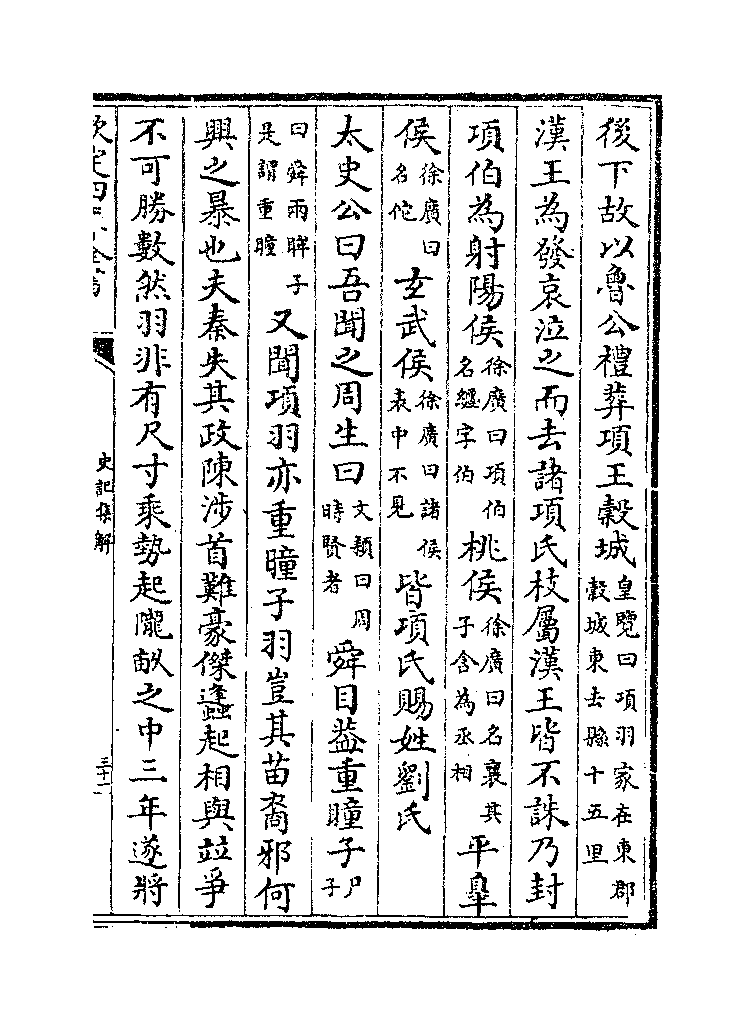 後下故以魯公禮葬項王榖城皇覽曰項羽冢在東郡榖城東去縣十五里
漢王為發哀泣之而去諸項氏枝屬漢王皆不誅乃封
項伯為射陽侯徐廣曰項伯名纒字伯桃侯徐廣曰名襄其子含為丞相平臯
侯徐廣曰名佗玄武侯徐廣曰諸侯表中不見皆項氏賜姓劉氏
太史公曰吾聞之周生曰文穎曰周時賢者舜目葢重瞳子尸子
曰舜兩眸子是謂重瞳又聞項羽亦重瞳子羽豈其苗裔邪何
興之暴也夫秦失其政陳涉首難豪傑蠭起相與竝爭
不可勝數然羽非有尺寸乘勢起隴畝之中三年遂將
欽定四庫全書
史記集解
三十一